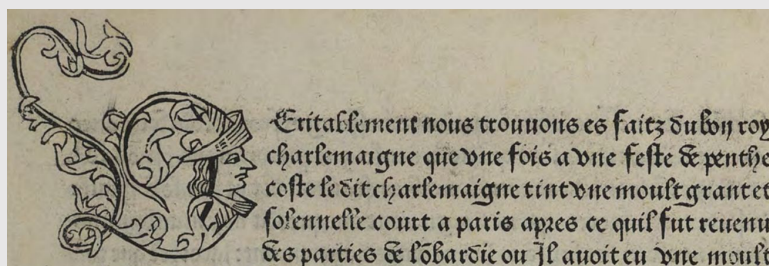 VEritablement nous trouuons es faitz du bon roy
charlemaigne que vne fois a vne feste de penthe
coste le dit charlemaigne tint vne moult grant et
solennelle court a paris apres ce quil fut reuenu
des parties de lõbardie ou Il auoit eu vne moult